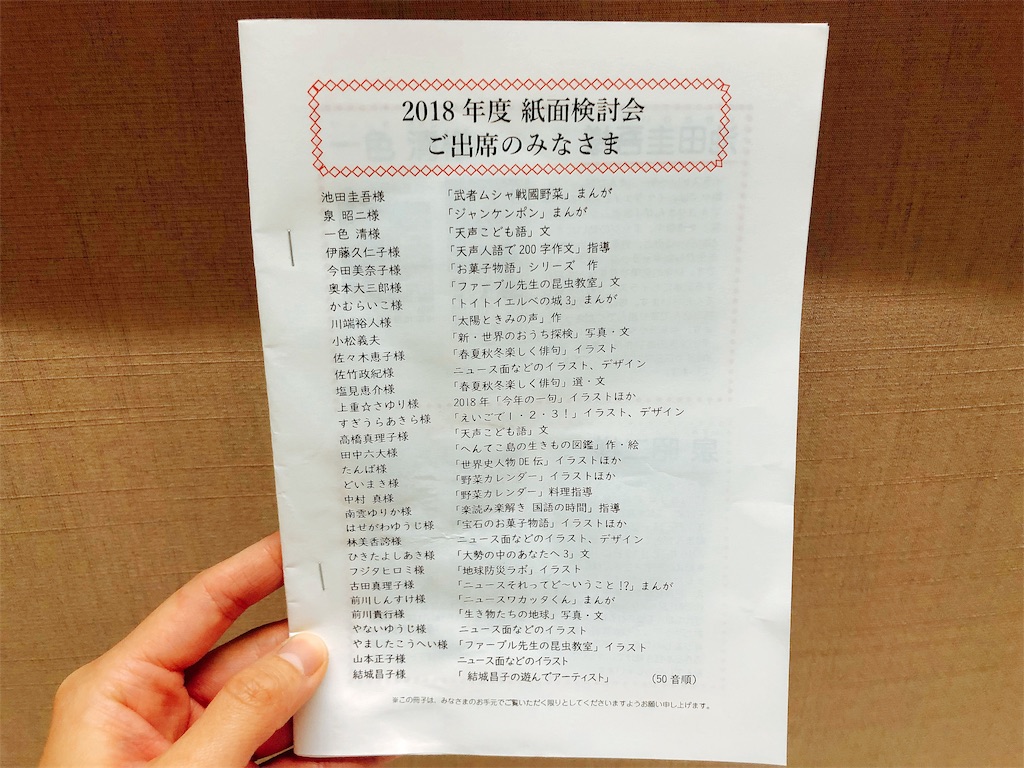 2018 年度 紙面検討会
ご出席のみなさま
池田圭吾様 「武者ムシャ戦國野菜」まんが
泉 昭二様 「ジャンケンポン」まんが
一色 清様 「天声こども語」文
伊藤久仁子様 「天声人語で 200 字作文」指導
今田美奈子様 「お菓子物語」シリーズ 作
奥本大三郎様 「ファーブル先生の昆虫教室」文
かむらいこ様 「トイトイエルベの城 3」まんが
川端裕人様 「太陽ときみの声」作
小松義夫 「新・世界のおうち探検」写真・文
佐々木恵子様 「春夏秋冬楽しく俳句」イラスト
佐竹政紀様 ニュース面などのイラスト、デザイン
塩見恵介様 「春夏秋冬楽しく俳句」選・文
上重☆さゆり様 2018 年「今年の一句」イラストほか
すぎうらあきら様 「えいごで1・2・3!」イラスト、デザイン
高橋真理子様 「天声こども語」文
田中六大様 「へんてこ島の生きもの図鑑」作・絵
たんば様 「世界史人物 DE 伝」イラストほか
どいまき様 「野菜カレンダー」イラストほか
中村 真様 「野菜カレンダー」料理指導
南雲ゆりか様 「楽読み楽解き 国語の時間」指導
はせがわゆうじ様 「宝石のお菓子物語」イラストほか
林美香誇様 ニュース面などのイラスト、デザイン
ひきたよしあき様 「大勢の中のあなたへ 3」文
フジタヒロミ様 「地球防災ラボ」イラスト
古田真理子様 「ニュースそれってど〜いうこと!?」まんが
前川しんすけ様 「ニュースワカッタくん」まんが
前川貴行様 「生き物たちの地球」写真・文
やないゆうじ様 ニュース面などのイラスト
やましたこうへい様 「ファーブル先生の昆虫教室」イラスト
山本正子様 ニュース面などのイラスト
結城昌子様 「 結城昌子の遊んでアーティスト」 (50 音順)
※この冊子は、みなさまのお手元でご覧いただく限りとしてくださいますようお願い申し上げます。